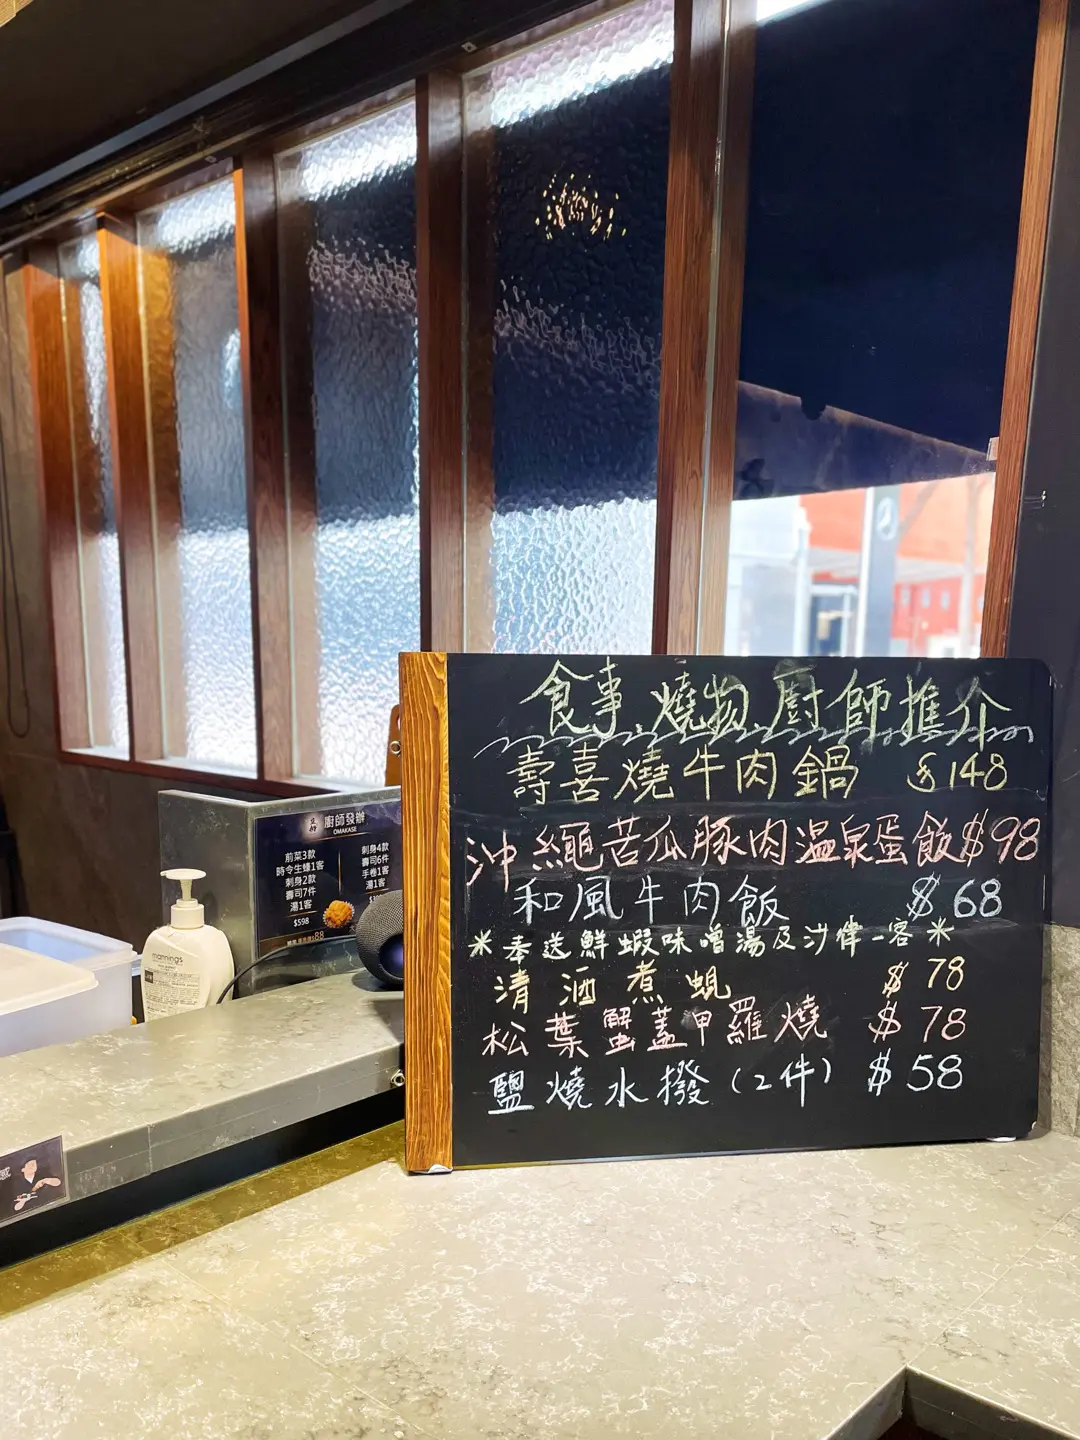 食事.燒物.廚師推介
壽喜燒牛肉鍋 $148
沖繩苦瓜豚肉溫泉蛋飯$98
和風牛肉飯 $68
*奉送鮮蝦味噌湯及沙律一客*
清酒煮蜆 $78
松葉蟹蓋甲羅燒 $78
鹽燒水撥(2件) $58
廚師發辦
OMAKASE
前菜3款
時令生蠔1客
刺身2款
壽司7件
湯1客
$598
刺身4款
壽司6件
手卷1客
湯1客
mannings